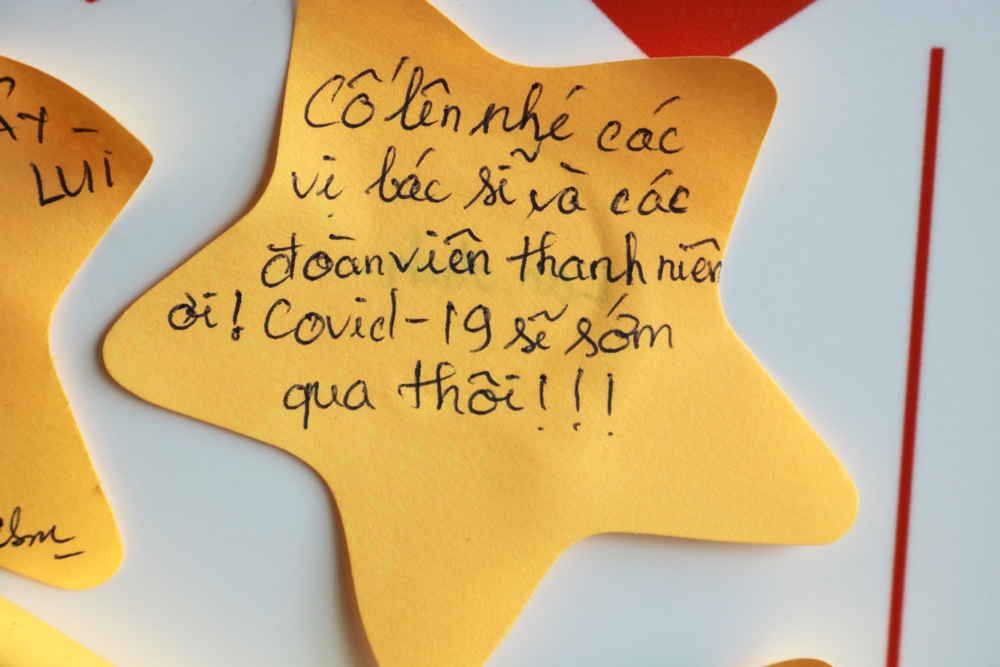 Cố lên nhé các
vị bác sĩ và các
đoàn viên thanh niên
ơi! Covid-19 sẽ sớm
qua thôi!!!
LUI